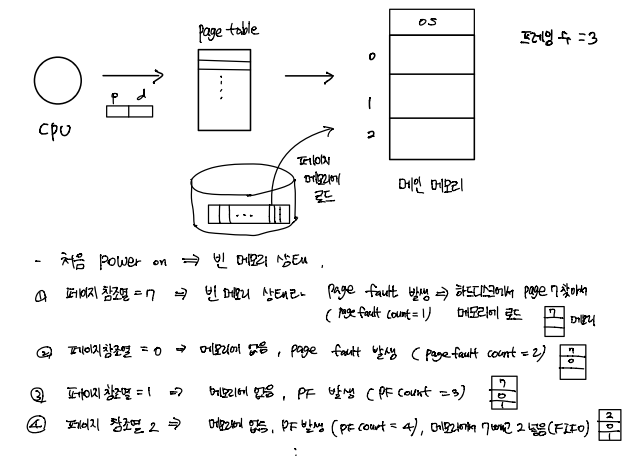 Page table
OS
프레임 수 = 3
0
p d
1
CPU
2
페이지
메모리에
로드
메인 메모리
- 처음 power on ⇒ 빈 메모리 상태.
① 페이지참조열 = 7 ⇒ 빈 메모리 상태라 page fault 발생 ⇒ 하드디스크에서 page 7 찾아서
(page fault count = 1) 메모리에 로드 7 메모리
② 페이지참조열 = 0 ⇒ 메모리에 없음, page fault 발생 (page fault count = 2) 7 0
③ 페이지참조열 = 1 ⇒ 메모리에 없음, PF 발생 (PF count = 3) 7 0 1
④ 페이지 참조열 2 ⇒ 메모리에 없음, PF 발생 (PF count = 4), 메모리에서 7 빼고 2 넣음 (FIFO) 2 0 1